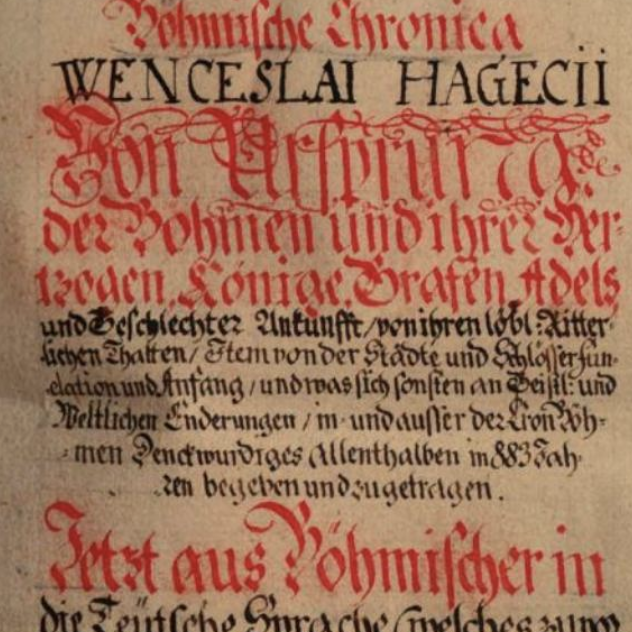 Böhmische Chronica
WENCESLAI HAGECII
Von Ursprung
der Böhmen und ihrer Her-
tzogen, Könige, Grafen, Adels
und Geschlechter Ankunfft / von ihren löbl: Ritter-
lichen Thatten / Item von der Städte und Schlösser fun-
dation und Anfang / und was sich sonsten an Geistl: und
Weltlichen Enderungen / in- und ausser der Cron Böh-
men Denckwürdiges Allenthalben in 883 Jah-
ren begeben und zugetragen.
Jetzt aus Böhmischer in
die Teütsche Sprache (welches zum